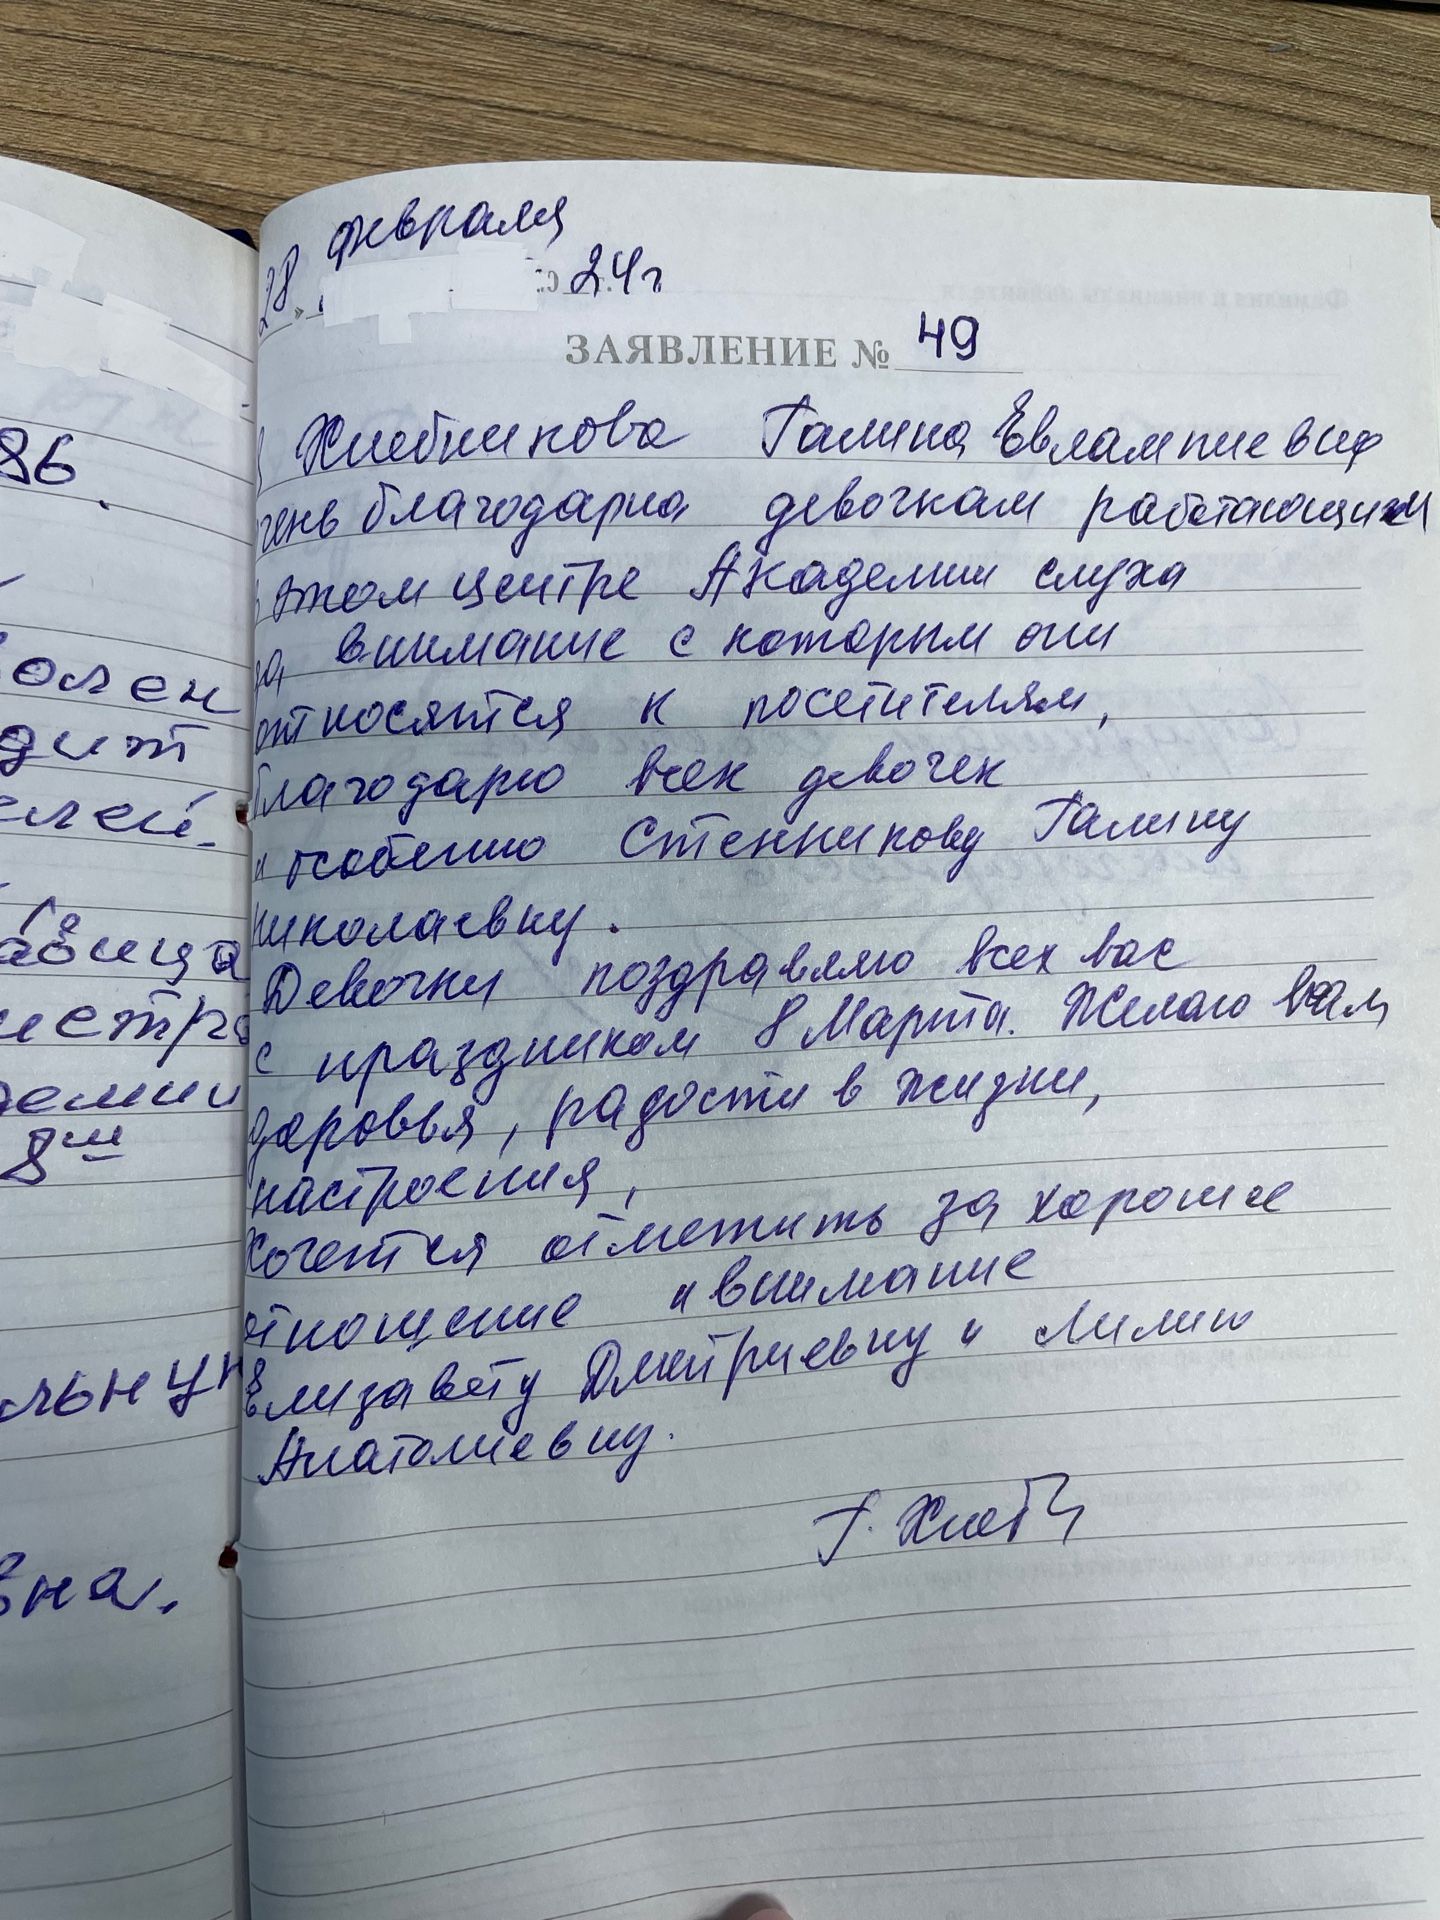 86.
олен
дит
елей.
абица
метра
демии
8ш
льную
вна.
февраля
28 » 20 24 г.
ЗАЯВЛЕНИЕ № 49
Хлебникова Галина Евлампиев
чень благодарна девочкам работающим
этом центре Академии слуха
за внимание с которым они
относятся к посетителям,
благодарю всех девочек
и особенно Стенникову Галину
Николаевну.
Девочки поздравляю всех вас
с праздником 8 Марта. Желаю вам
здоровья, радости в жизни,
настроения,
Хочется отметить за хорошее
отношение и внимание
Елизавету Дмитриевну и Лилию
Анатолиевну.
Г. Хлеб